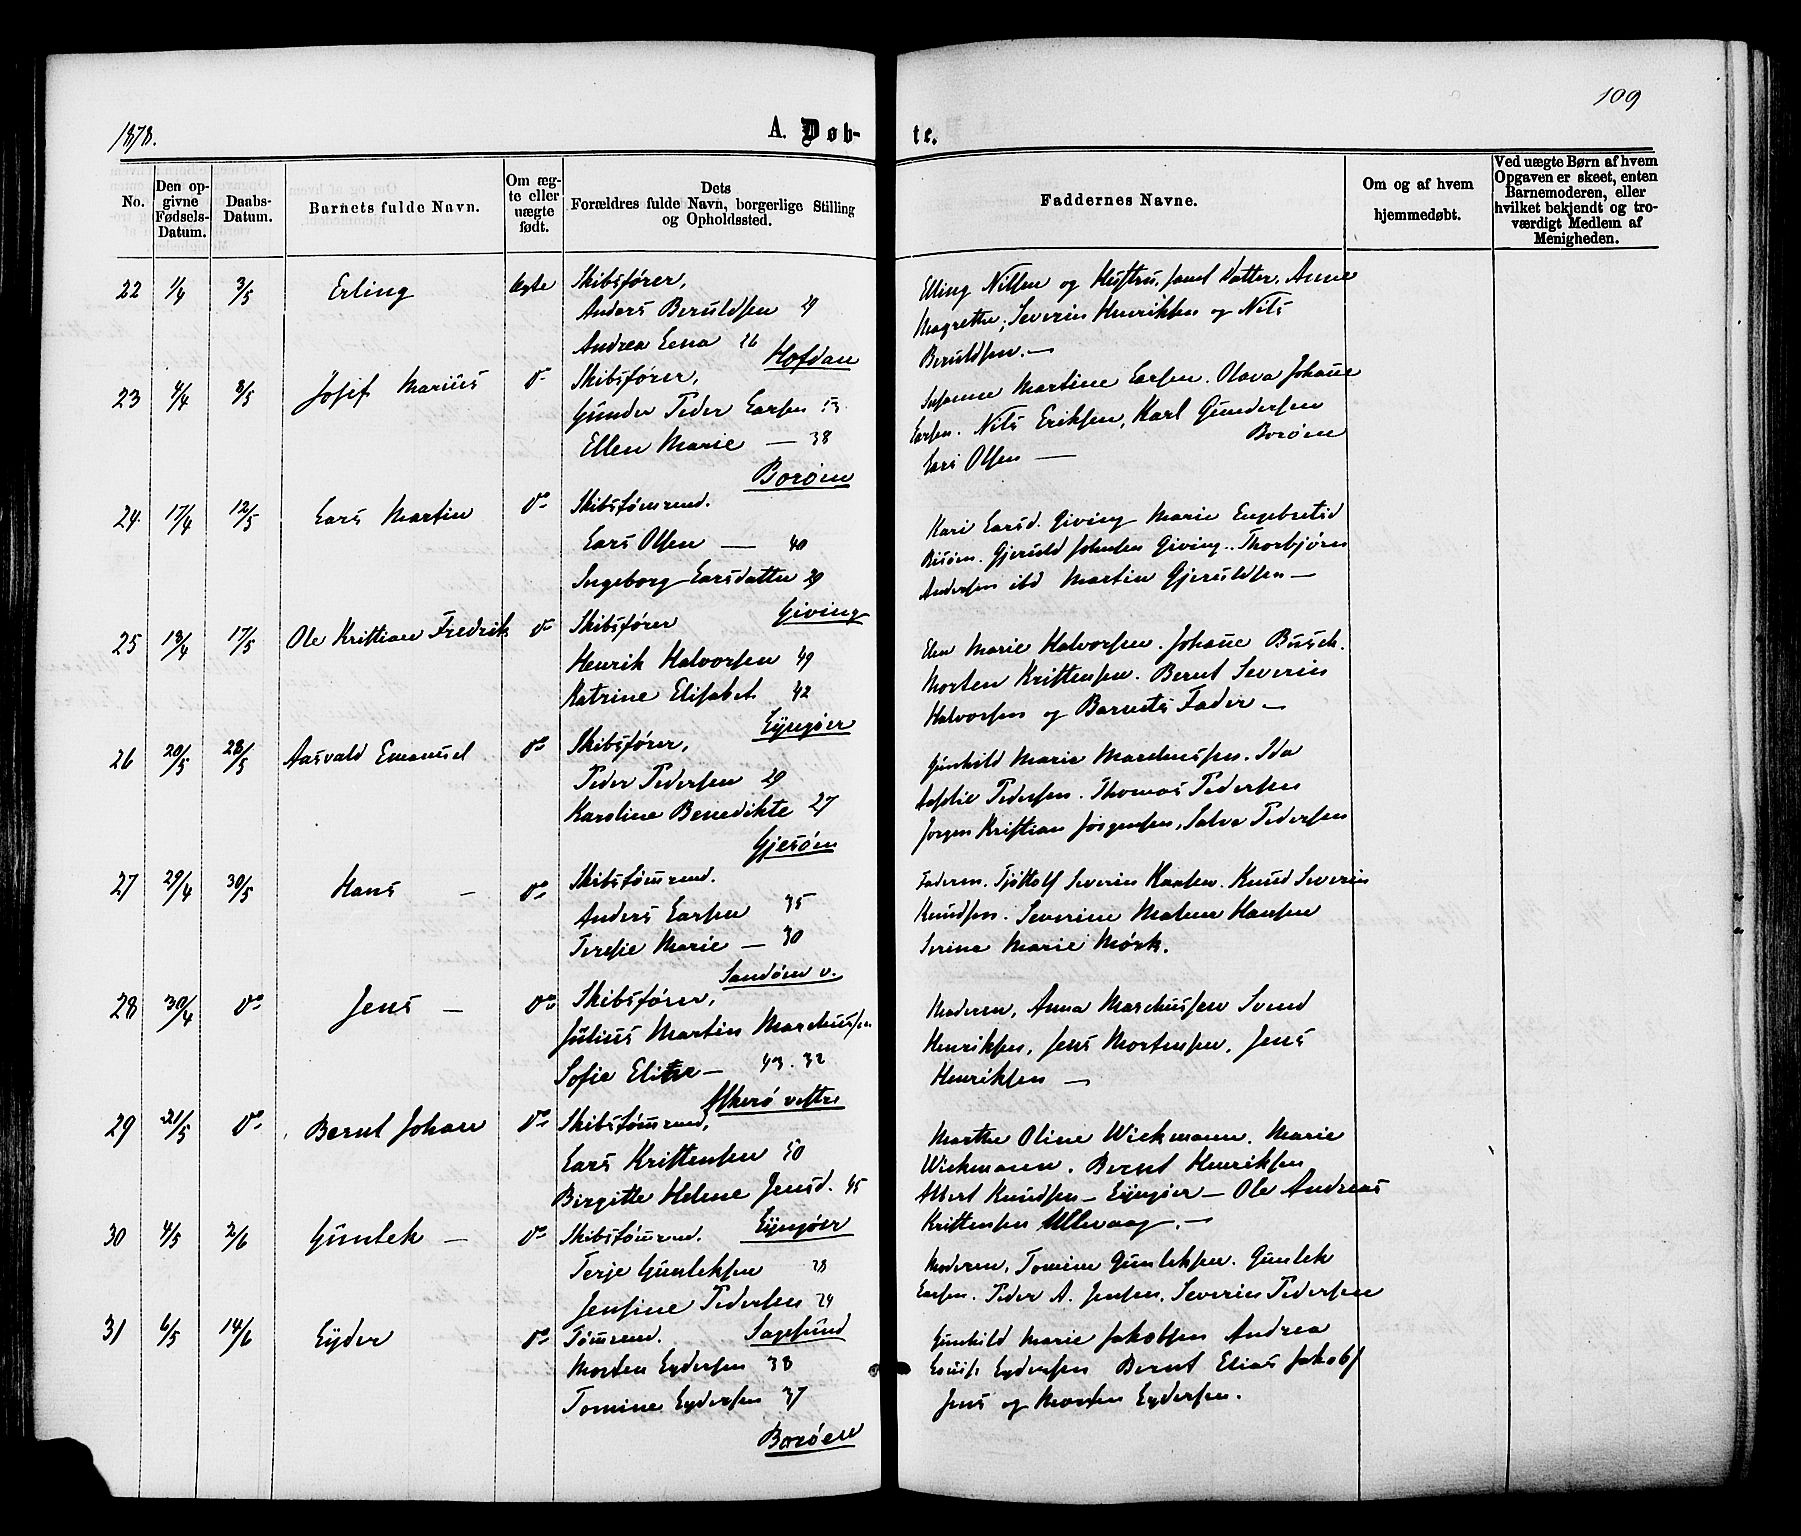 109
1878.
A. Døb-
te.
No.
Den op-
givne
Fødsels-
Datum.
Daabs-
Datum.
Barnets fulde Navn.
Om æg-
te eller
uægte
født.
Dets
Forældres fulde Navn, borgerlige Stilling
og Opholdssted.
Faddernes Navne.
Om og af hvem
hjemmedøbt.
Ved uægte Børn af hvem
Opgaven er skeet, enten
Barnemoderen, eller
hvilket bekjendt og tro-
værdigt Medlem af
Menigheden.
22 1/4 3/5 Erling Ægte Skibsfører,
Anders Beruldsen 29
Andrea Lena 26
Hofdan
Elling Nilsen og Hustru, samt Datter, Anne
Magrethe, Severin Henriksen og Nils
Beruldsen. —
23 4/4 3/5 Josef Marius do Skibsfører,
Gunder Peder Larsen 53
Ellen Marie — 38
Borøen
Susanne Martine Larsen. Olava Johanne
Larsen. Nils Eriksen, Karl Gundersen
Lars Olsen — Borøen
24. 17/4 12/5 Lars Martin do Skibstømmend.
Lars Olsen — 40
Ingeborg Larsdatter 29
Giving
Kari Larsd. Giving Marie Engebretsd
Gjeruld Johnsen Giving. Thorbjørn
Andersen ibd Martin Gjeruldsen —
25 13/4 17/5 Ole Kristian Fredrik do Skibsfører
Henrik Halvorsen 49
Katrine Elisabet 42
Lyngøer
Elen Marie Halvorsen. Johanne Busch.
Morten Kristensen. Bernt Severin
Halvorsen og Barnets Fader —
26 20/5 28/5 Aasvald Emanuel do Skibsfører,
Peder Pedersen 29
Karoline Benedikte 27
Gjesøen
Gunhild Marie Marchussen. Ida
Pedersen. Thomas Pedersen
Jørgen Kristian Jørgensen, Salve Pedersen
27 29/4 30/5 Hans — do Skibstømmend.
Anders Larsen 35
Teresie Marie — 30
Sandøen v.
Faderen. Tjøttolf Severin Hansen. Knud Severin
Knudsen. Severine Malene Hansen
Serine Marie Mørk.
28 30/4 do Jens — do Skibsfører,
Julius Martin Marchussen
Sofie Elise — 43. 32
Askerø vestre
Moderen, Anna Marchussen Svend
Henriksen, Jens Mortensen, Jens
Henriksen —
29 21/5 do Bernt Johan do Skibstømmend,
Lars Kristensen 50
Birgitte Helene Jensd. 45
Lyngøer
Marthe Oline Wickmann. Marie
Wickmann. Bernt Henriksen
Albert Knudsen — Lyngøer — Ole Andreas
Kristensen Ullevaag. —
30 4/5 2/6 Gunlek — do Skibstømmend.
Terje Gunleksen 28
Jensine Pedersen 24
Sagesund
Moderen, Tomine Gunleksen. Gunlek
Larsen. Peder A. Jensen. Severin Pedersen
31 6/5 14/6 Eyder do Tømmend.
Morten Eydersen 38
Tomine Eydersen 37
Borøen
Gunhild Marie Jakobsen Andrea
Lovise Eydersen Bernt Elias Jakobs
Jens og Morten Eydersen.